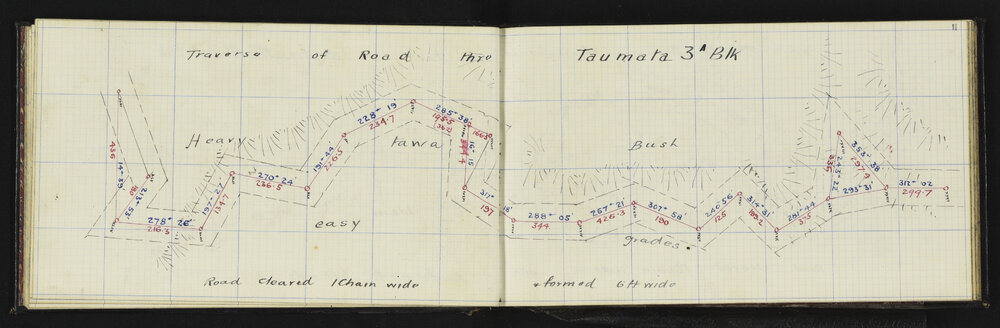 11
Traverse of Road thro Taumata 3A Blk
Heavy tawa Bush
easy grades.
Road cleared 1 Chain wide & formed 6 ft wide
436
14° 39'
213° 53'
278° 26'
216.3
197° 27'
134.7
270° 24'
236.5
191° 44'
226.5
228° 19'
234.7
285° 38'
195.5
166.5
16° 15'
311°
197
18'
288° 05'
344
267° 21'
426.3
307° 58'
190
240° 56'
125
314° 31'
169.2
281° 44'
375
243° 22'
335
353° 38'
297.9
293° 31'
312° 02'
299.7